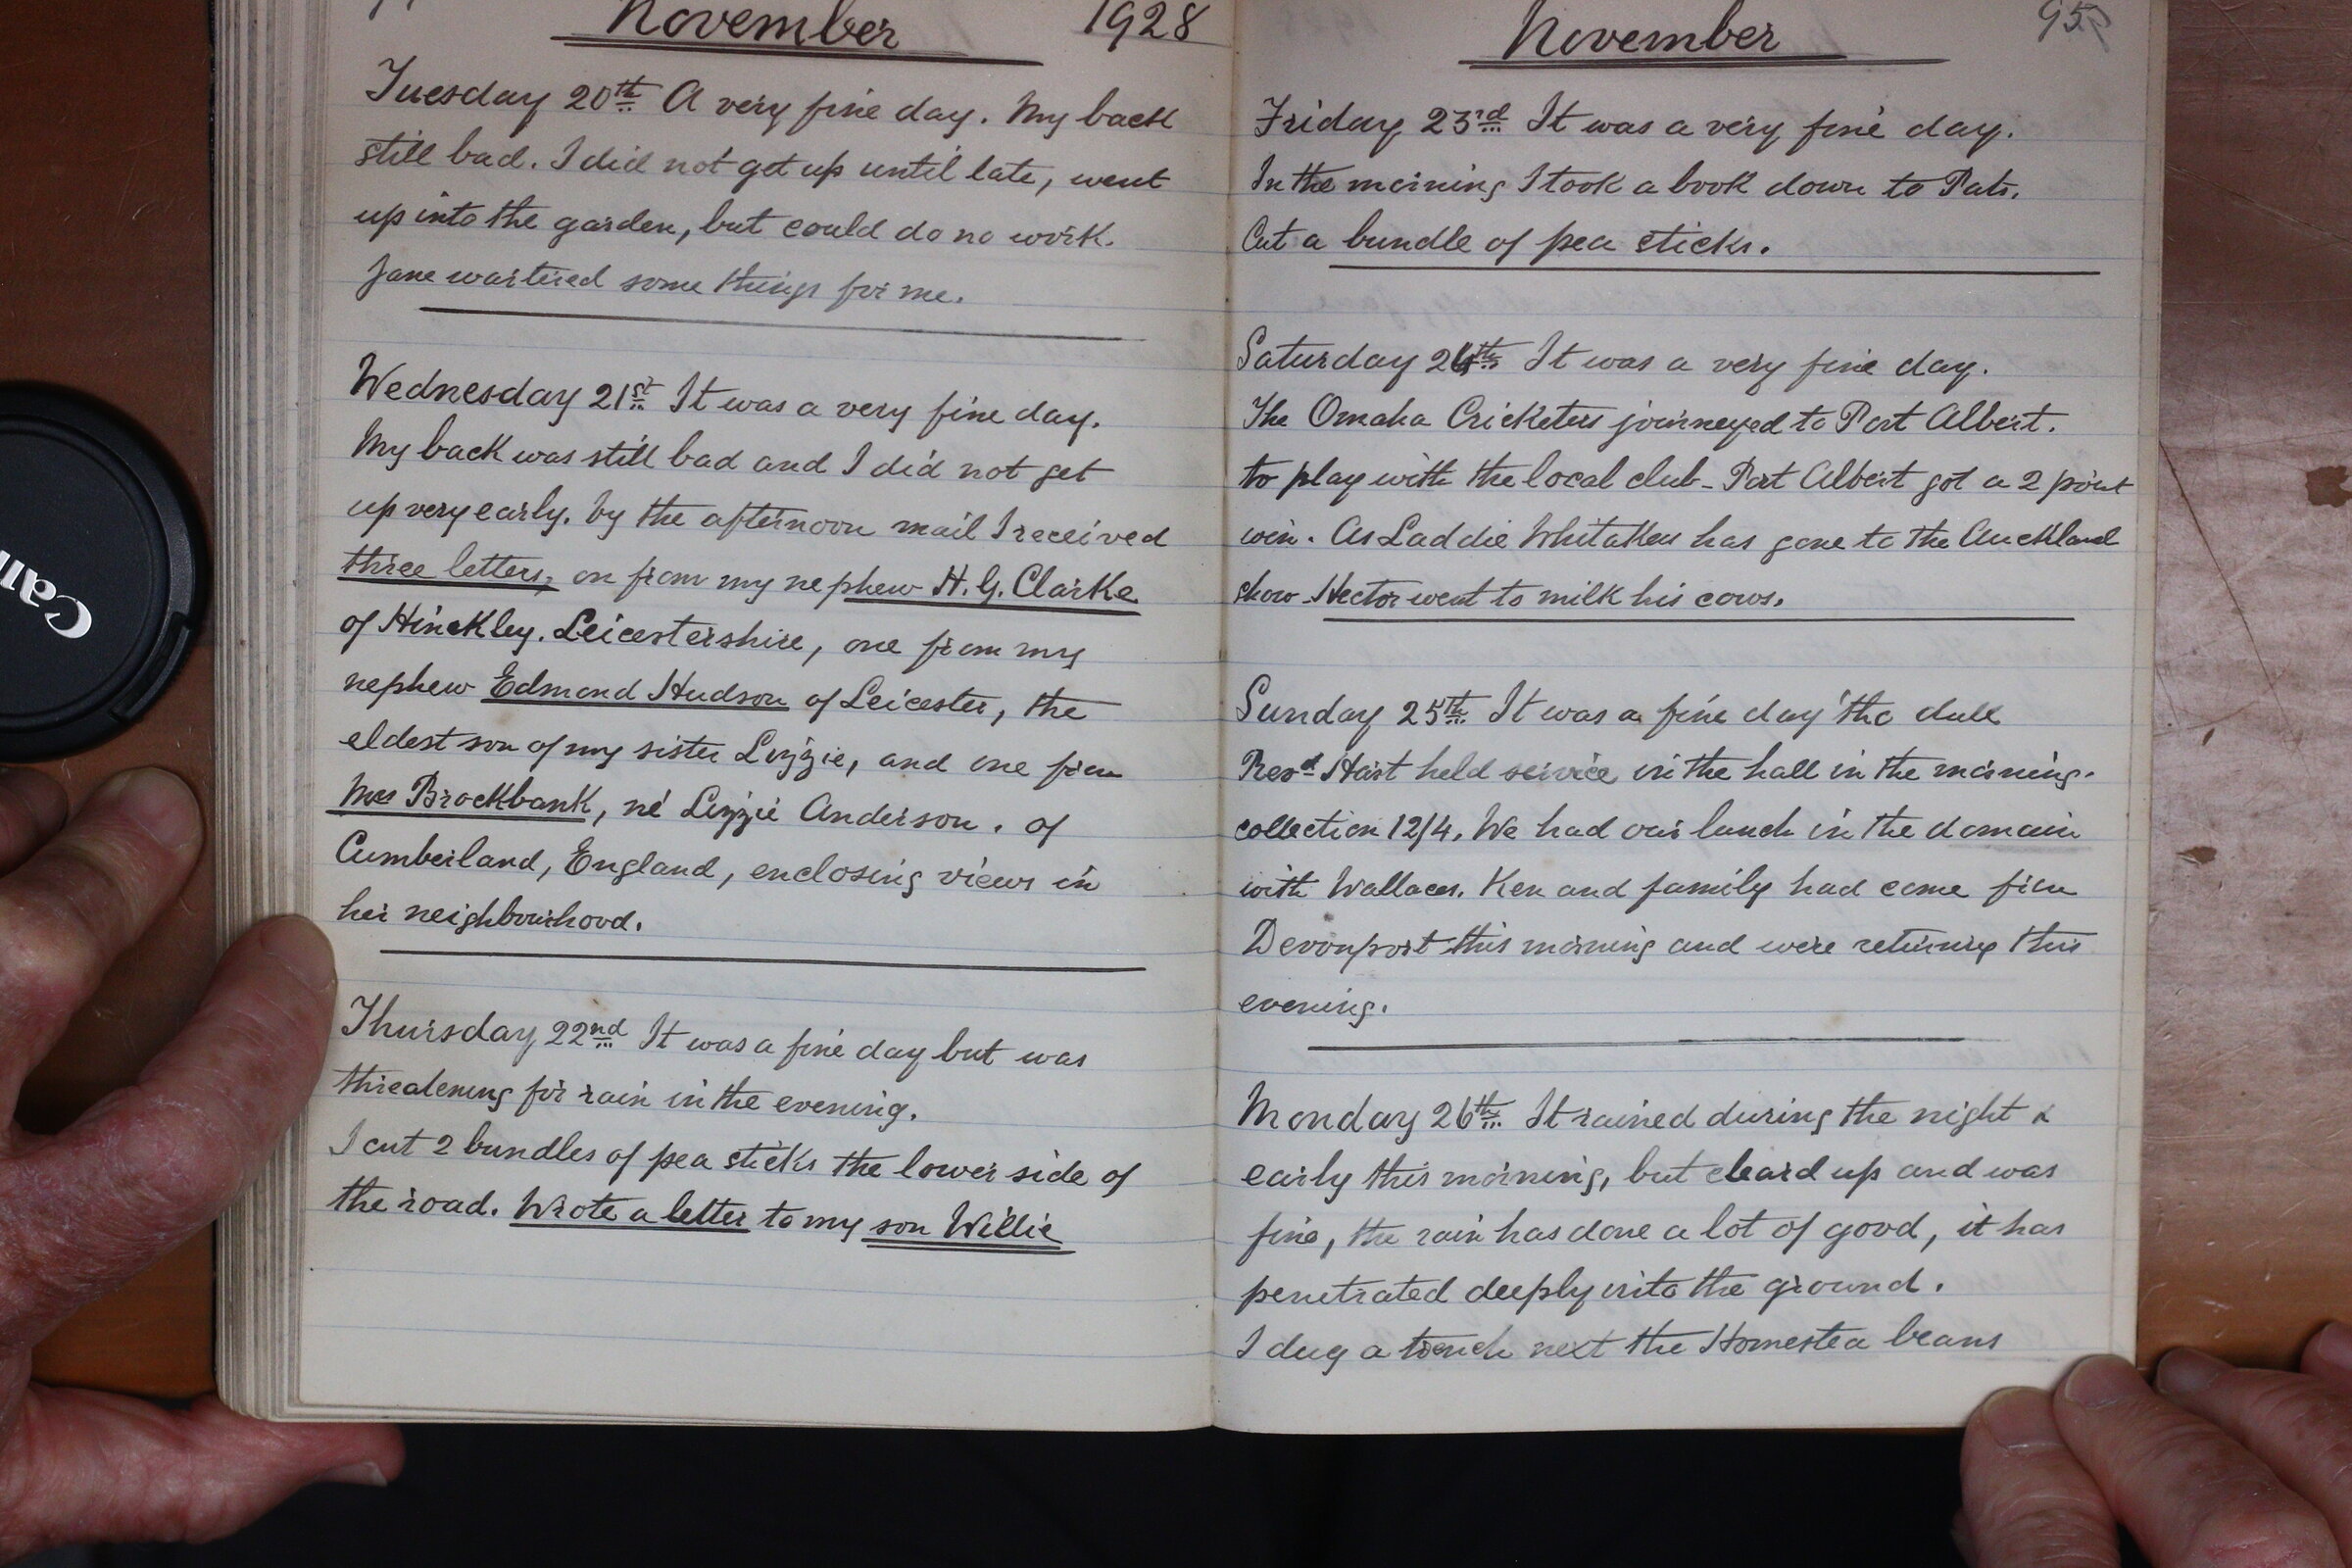 November 1928
Tuesday 20th A very fine day. My back
still bad. I did not get up until late, went
up into the garden, but could do no work.
Jane wartered some things for me.
Wednesday 21st It was a very fine day.
My back was still bad and I did not get
up very early. by the afternoon mail I received
three letters, on from my nephew H. G. Clarke
of Hinckley. Leicestershire, one from my
nephew Edmond Hudson of Leicester, the
eldest son of my sister Lizzie, and one from
Mrs Brockbank, né Lizzie Anderson. of
Cumberland, England, enclosing views in
her neighbourhood.
Thursday 22nd It was a fine day but was
threatening for rain in the evening.
I cut 2 bundles of pea sticks the lower side of
the road. Wrote a letter to my son Willie
November 95
Friday 23rd It was a very fine day.
In the morning I took a book down to Pats.
Cut a bundle of pea sticks.
Saturday 24th It was a very fine day.
The Omaha Cricketers journeyed to Port Albert.
to play with the local club - Port Albert got a 2 point
win. As Laddie Whitaker has gone to the Auckland
show - Hector went to milk his cows.
Sunday 25th It was a fine day tho dull
Revd Hart held service in the hall in the morning.
collection 12/4. We had our lunch in the domain
with Wallaces. Ken and family had come from
Devonport this morning and were returning this
evening.
Monday 26th It rained during the night &
early this morning, but cleard up and was
fine, the rain has done a lot of good, it has
penetrated deeply into the ground.
I dug a trench next the Homestea beans
Can